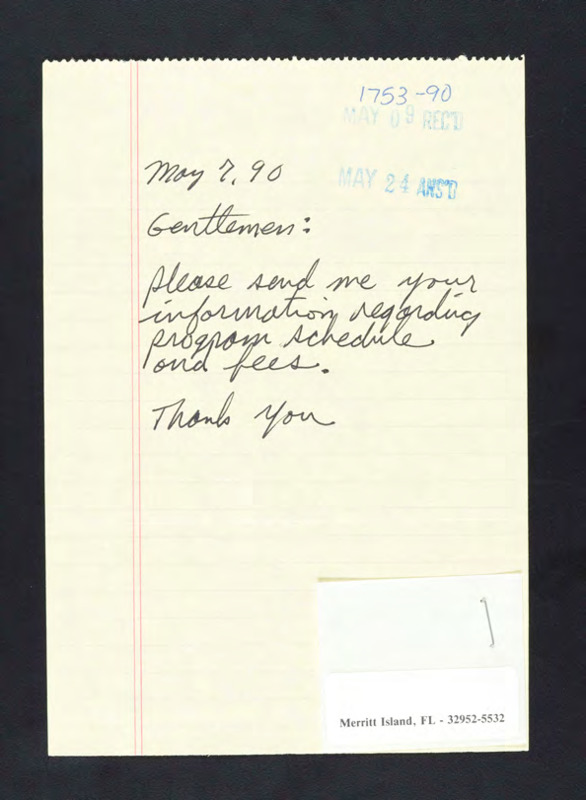 1753-90
MAY 09 REC'D
May 7, 90
MAY 24 ANS'D
Gentlemen:
please send me your
information regarding
program schedule
and fees.
Thank you
Merritt Island, FL - 32952-5532